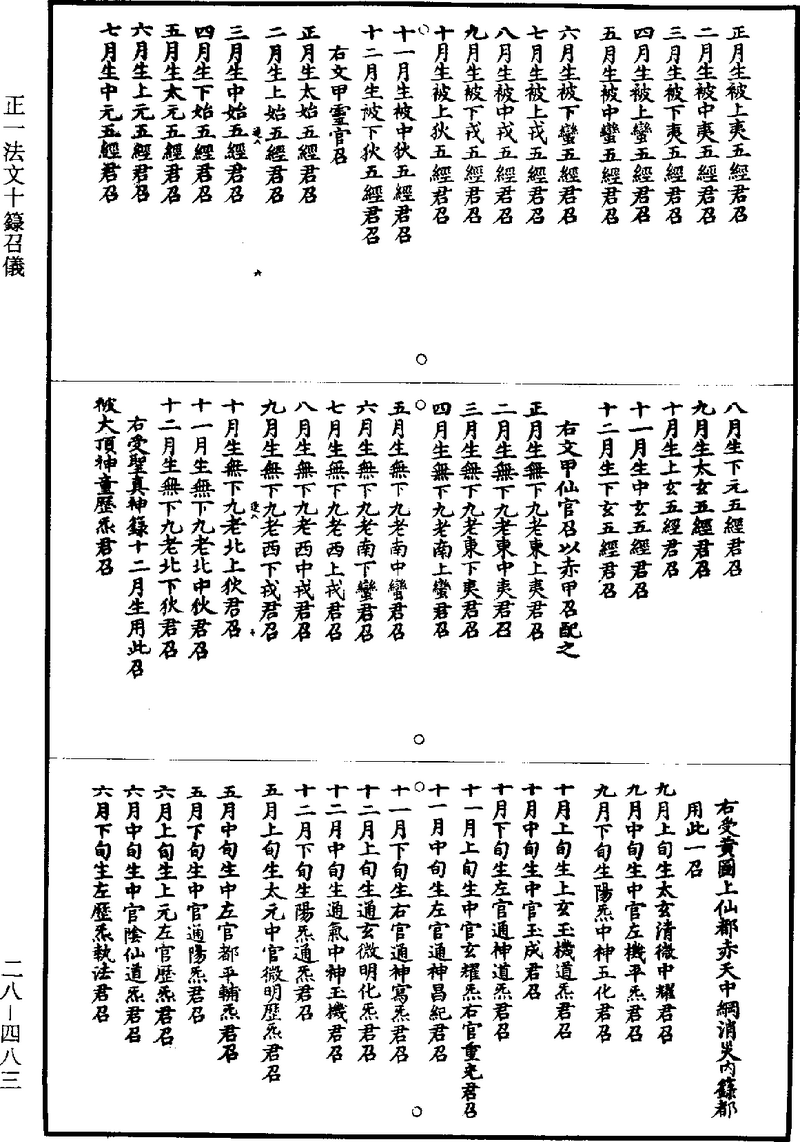 正月生被上夷五經君召
二月生被中夷五經君召
三月生被下夷五經君召
四月生被上蠻五經君召
五月生被中蠻五經君召
六月生被下蠻五經君召
七月生被上戎五經君召
八月生被中戎五經君召
九月生被下戎五經君召
十月生被上狄五經君召
十一月生被中狄五經君召
十二月生被下狄五經君召
右文甲靈官召
正月生太始五經君召
二月生上始五經君召
三月生中始五經君召
四月生下始五經君召
五月生太元五經君召
六月生上元五經君召
七月生中元五經君召
八月生下元五經君召
九月生太玄五經君召
十月生上玄五經君召
十一月生中玄五經君召
十二月生下玄五經君召
右文甲仙官召以赤甲召配之
正月生無下九老東上夷君召
二月生無下九老東中夷君召
三月生無下九老東下夷君召
四月生無下九老南上蠻君召
五月生無下九老南中蠻君召
六月生無下九老南下蠻君召
七月生無下九老西上戎君召
八月生無下九老西中戎君召
九月生無下九老西下戎君召
十月生無下九老北上狄君召
十一月生無下九老北中狄君召
十二月生無下九老北下狄君召
右受聖真神籙十二月生用此召
被大頂神童歷炁君召
右受黃圖上仙都赤天中綱消災內籙都
用此一召
九月上旬生太玄清微中耀君召
九月中旬生中官左機平炁君召
九月下旬生陽炁中神五化君召
十月上旬生上玄玉機道炁君召
十月中旬生中官玉成君召
十月下旬生左官通神道炁君召
十一月上旬生中官玄耀炁右官重光君召
十一月中旬生左官通神昌紀君召
十一月下旬生右官通神寫炁君召
十二月上旬生通玄微明化炁君召
十二月中旬生通氣中神玉機君召
十二月下旬生陽炁通炁君召
五月上旬生太元中官微明歷炁君召
五月中旬生中左官都平輔炁君召
五月下旬生中官通陽炁君召
六月上旬生上元左官歷炁君召
六月中旬生中官陰仙道炁君召
六月下旬生左歷炁執法君召
正一法文十籙召儀
二八—四八三